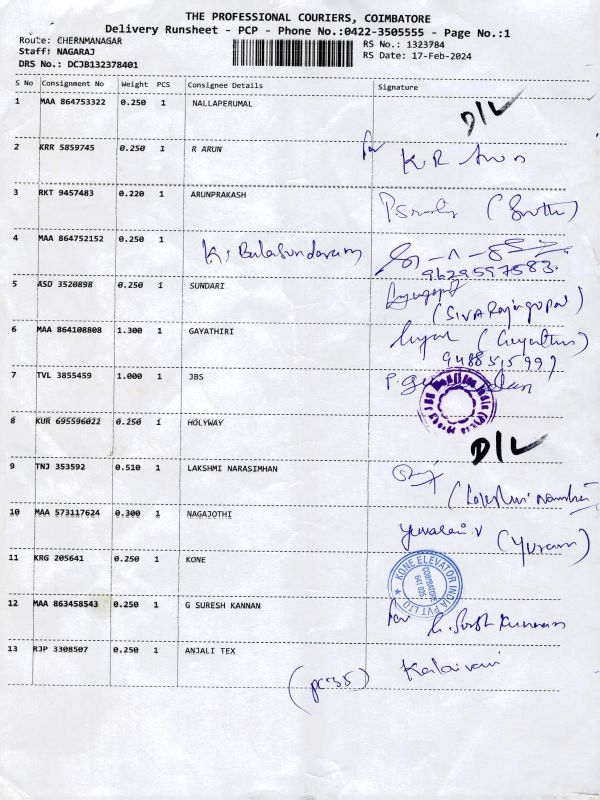 THE PROFESSIONAL COURIERS, COIMBATORE
Delivery Runsheet - PCP - Phone No.:0422-3505555 - Page No.:1
Route: CHERNMANAGAR RS No.: 1323784
Staff: NAGARAJ RS Date: 17-Feb-2024
DRS No.: DCJB132378401
S No Consignment No Weight PCS Consignee Details Signature
1 MAA 864753322 0.250 1 NALLAPERUMAL D/L
2 KRR 5859745 0.250 1 R ARUN for K.R
3 RKT 9457483 0.220 1 ARUNPRAKASH
4 MAA 864752152 0.250 1 K. Balasundaram
9629597583.
5 ASD 3520898 0.250 1 SUNDARI
(SIVA Rajagopal)
6 MAA 864108808 1.300 1 GAYATHIRI
7 TVL 3855459 1.000 1 JBS
8 KUR 695596022 0.250 1 HOLYWAY D/L
9 TNJ 353592 0.510 1 LAKSHMI NARASIMHAN
10 MAA 573117624 0.300 1 NAGAJOTHI
11 KRG 205641 0.250 1 KONE KONE ELEVATOR INDIA PVT LTD
12 MAA 863458543 0.250 1 G SURESH KANNAN for
13 RJP 3308507 0.250 1 ANJALI TEX Kalaivani